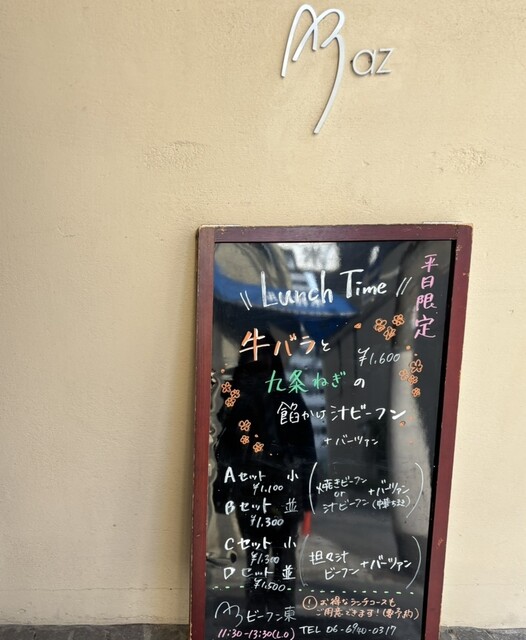 az
平日限定
Lunch Time
牛バラと
¥1,600
九条ねぎの
餡かけ汁ビーフン
+バーツァン
Aセット 小
¥1,100
Bセット 並
¥1,300
焼きビーフン
or +バーツァン
汁ビーフン (中華ちまき)
Cセット 小
¥1,300
Dセット 並
¥1,500
担々汁
ビーフン +バーツァン
ビーフン東
11:30-13:30(L.O)
! お得なランチコースも
ご用意できます!(要予約)
TEL 06-6940-0317